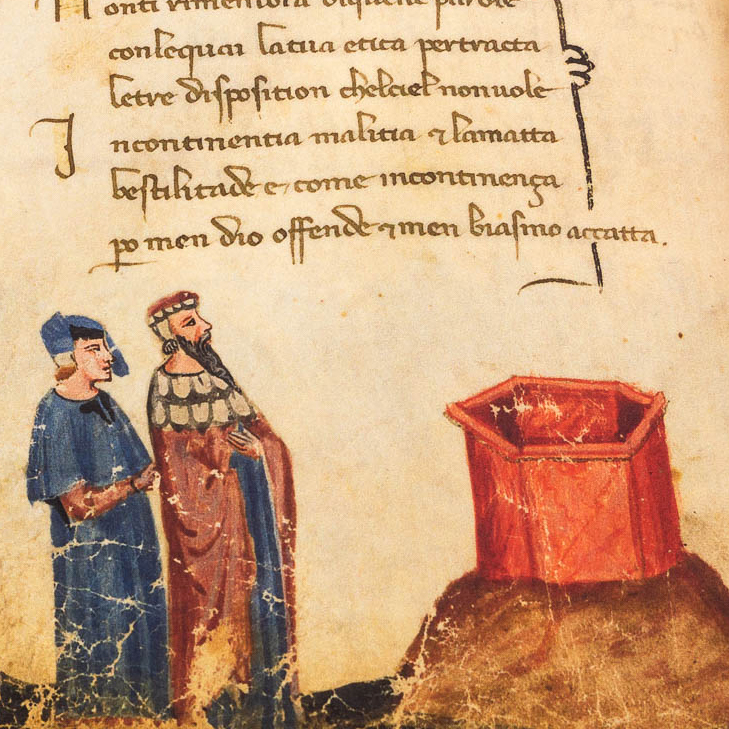 onti rimembra diquelle parole
conlequai latua etica pertracta
letre disposition chelciel nonuole
Incontinentia malitia ⁊ lamatta
bestilitade e come incontinença
po men dio offende ⁊ men biasmo accatta.